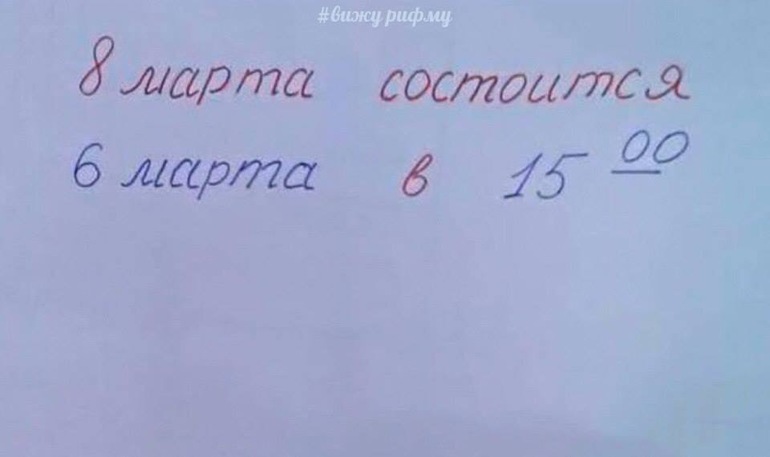 #вижу рифму
8 марта состоится
6 марта в 15 00